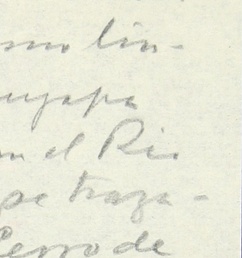 smo lin-
uyapa
en el Rio
pe traza-
Cerro de